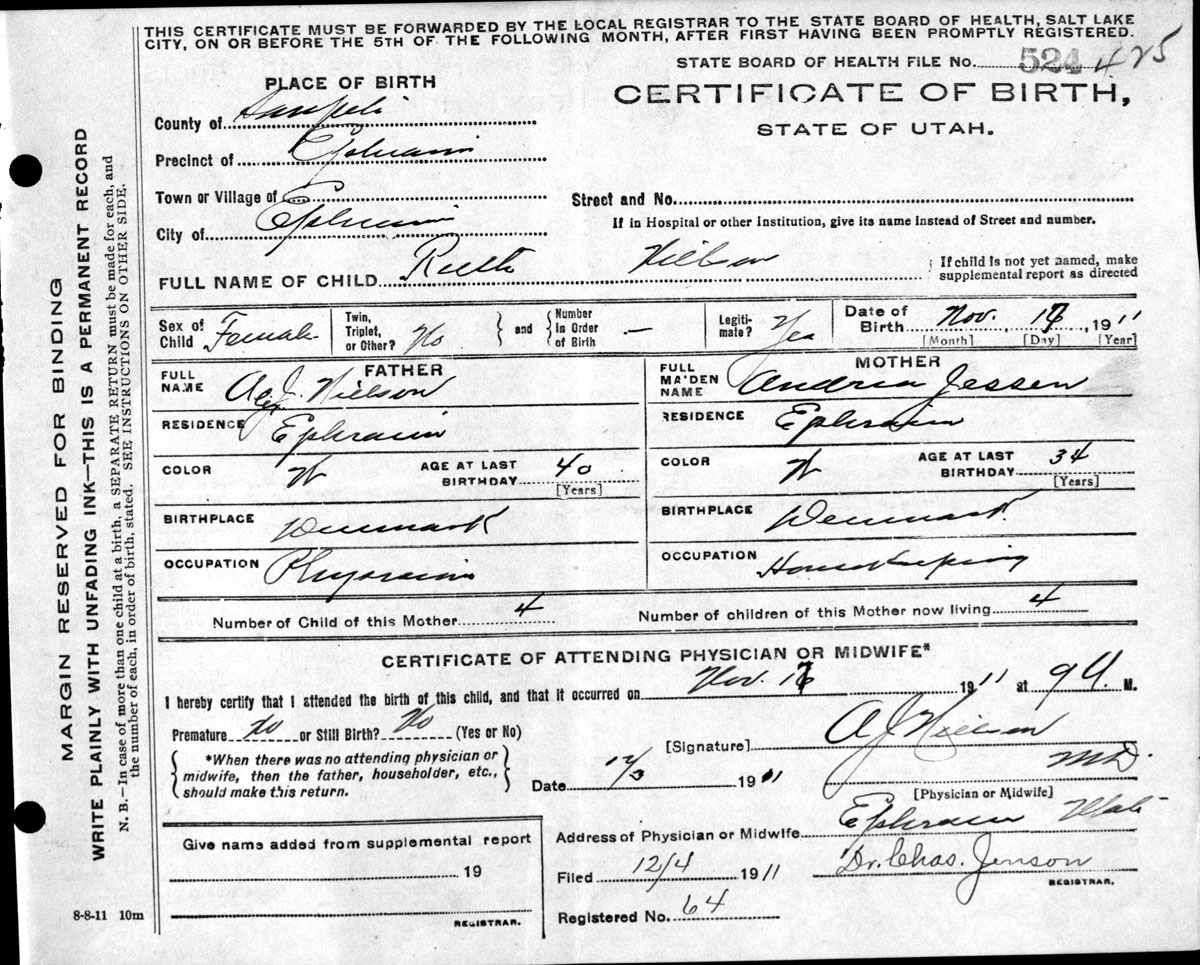 THIS CERTIFICATE MUST BE FORWARDED BY THE LOCAL REGISTRAR TO THE STATE BOARD OF HEALTH, SALT LAKE
CITY, ON OR BEFORE THE 5TH OF THE FOLLOWING MONTH, AFTER FIRST HAVING BEEN PROMPTLY REGISTERED.
STATE BOARD OF HEALTH FILE No. 524 425
PLACE OF BIRTH
CERTIFICATE OF BIRTH,
STATE OF UTAH.
County of Sanpete
Precinct of Ephraim
Town or Village of
Street and No.
City of Ephraim
If in Hospital or other Institution, give its name instead of Street and number.
FULL NAME OF CHILD Ruth Nielson
If child is not yet named, make
supplemental report as directed
Sex of Child Female
Twin, Triplet, or Other? No
and
Number in Order of Birth —
Legiti-mate? Yes
Date of Birth Nov. 17, 1911
[Month] [Day] [Year]
FATHER
MOTHER
FULL NAME A. J. Nielson
FULL MAIDEN NAME Andrea Jessen
RESIDENCE Ephraim
RESIDENCE Ephraim
COLOR W AGE AT LAST BIRTHDAY 40 [Years]
COLOR W AGE AT LAST BIRTHDAY 34 [Years]
BIRTHPLACE Denmark
BIRTHPLACE Denmark.
OCCUPATION Physician
OCCUPATION Housekeeping
Number of Child of this Mother 4
Number of children of this Mother now living 4
CERTIFICATE OF ATTENDING PHYSICIAN OR MIDWIFE*
I hereby certify that I attended the birth of this child, and that it occurred on Nov. 17 1911 at 9 A. M.
Premature No or Still Birth? No (Yes or No)
[Signature] A J Nielson
M.D.
*When there was no attending physician or
midwife, then the father, householder, etc.,
should make this return.
Date 12/3 1911
[Physician or Midwife]
Address of Physician or Midwife Ephraim Utah
Give name added from supplemental report
19
REGISTRAR.
Filed 12/4 1911
Dr. Chas. Jenson
REGISTRAR.
Registered No. 64
8-8-11 10m
MARGIN RESERVED FOR BINDING
WRITE PLAINLY WITH UNFADING INK—THIS IS A PERMANENT RECORD
N. B.—In case of more than one child at a birth, a SEPARATE RETURN must be made for each, and
the number of each, in order of birth, stated. SEE INSTRUCTIONS ON OTHER SIDE.